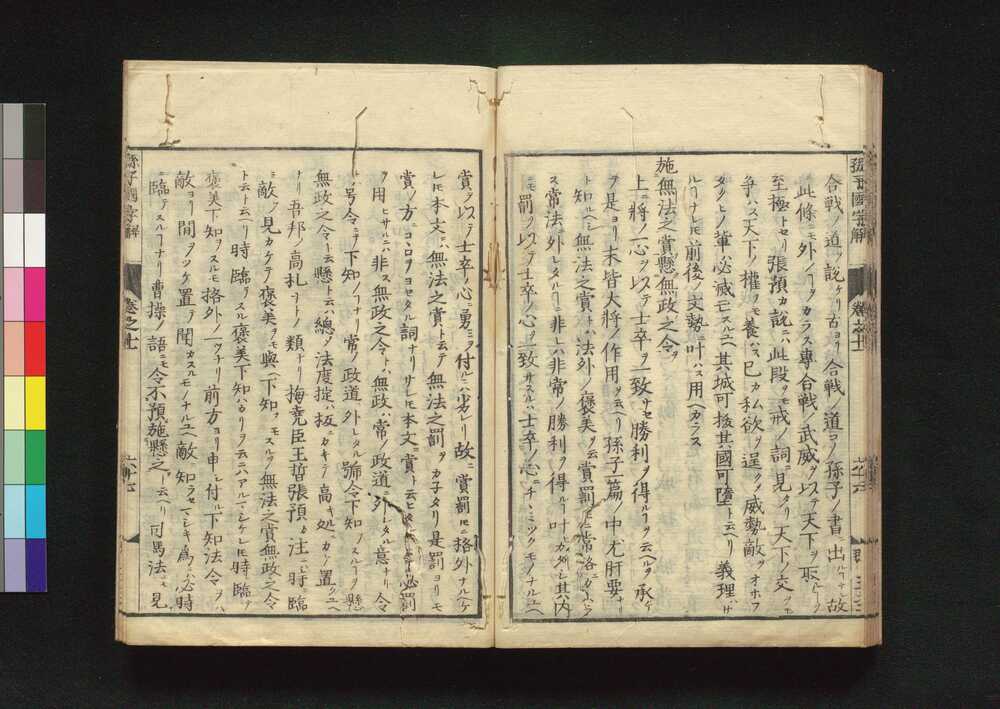 合戰ノ道ヲ說ケリ古ヨリ合戰ノ道コノ孫子ノ書ニ出ルヿナシ故
此條ニモ外ノイフヘカラス專合戰ノ武威ヲ以テ天下ヲ
至極トセリ張預カ說ニハ此段ヲモ戒ノ詞ニ見タリ天下ノ交ヲモ
爭ハス天下ノ權ヲモ養ハス已カ私欲ヲ逞クメ威勢敵ヲオホフ
タクヒノ軰ハ必滅亡スルユヘ其城可拔其國可墮ト云ヘリ義理ハサ
ルヿナレモ前後ノ文勢ニ叶ハス用ヘカラス
施無法之賞懸無政之令
上ニ將ノ心ヲ以テ士卒ヲ一致サセ勝利ヲ得ルヿヲ云ヘルヲ承ケ
是ヨリ末皆大將ノ作用ヲ云ヘリ孫子一篇ノ中尤肝要ナリ
ト知ルヘシ無法之賞トハ法外ノ褒美ヲ云賞罰
ス常法ニ外レタルヿニ非レハ非常ノ勝利ヲ得ルヿ叶ヒカタシ其內
ニモ罰ヲ以テ士卒ノ心ヲ一致サスルハ士卒ノ心ニチヽミツクモノナルユヘ
賞ヲ以テ士卒ノ心ニ勇ミヲ付ルニハ劣レリ故ニ賞罰圧ニ格外ナルヘケ
レモ本文ニハ無法之賞ト云テ無法之罰ヲカ子タリ是罰ヨリモ
賞ノ方ニコヽロヲヨセタル詞ナリサレモ本文ニ賞ト云ヒ必罰
ヲ用ヒサルニハ非ス無政之令トハ無政ハ常ノ政道ニ外レタル意ナリ令
ハ号令ニテ下知ノヿナリ常ノ政道ニ外レタル號令下知ヲスルヿヲ懸
無政之令ト云懸ト云ハ總メ法度掟ハ板ニカキテ高キ処ニカケ置クユヘ
ナリ吾邦ノ高札ナトノ類ナリ梅堯臣王晳張預カ注ニハ時ニ臨
ミ敵ヲ見カケテ褒美ヲモ與ヘ下知ヲモスルヲ無法之賞無政之令
ト云ト云ヘリ時ニ臨ソスル褒美下知ハカリヲ云ニハアルマシケレモ時ニ臨テ
褒美下知ヲスルモ格外ノ一ツナリ前方ヨリ申シ付ル下知法令ヲハ
敵ヨリ間ヲツケ置テ聞カスルモノナルユヘ敵ニ知ラセマシキ爲ニハ必時
ニ臨テスルヿナリ曹操ノ語ニモ令不預施懸之ト云ヘリ司馬法ニモ見
孫子國字解
卷之十一